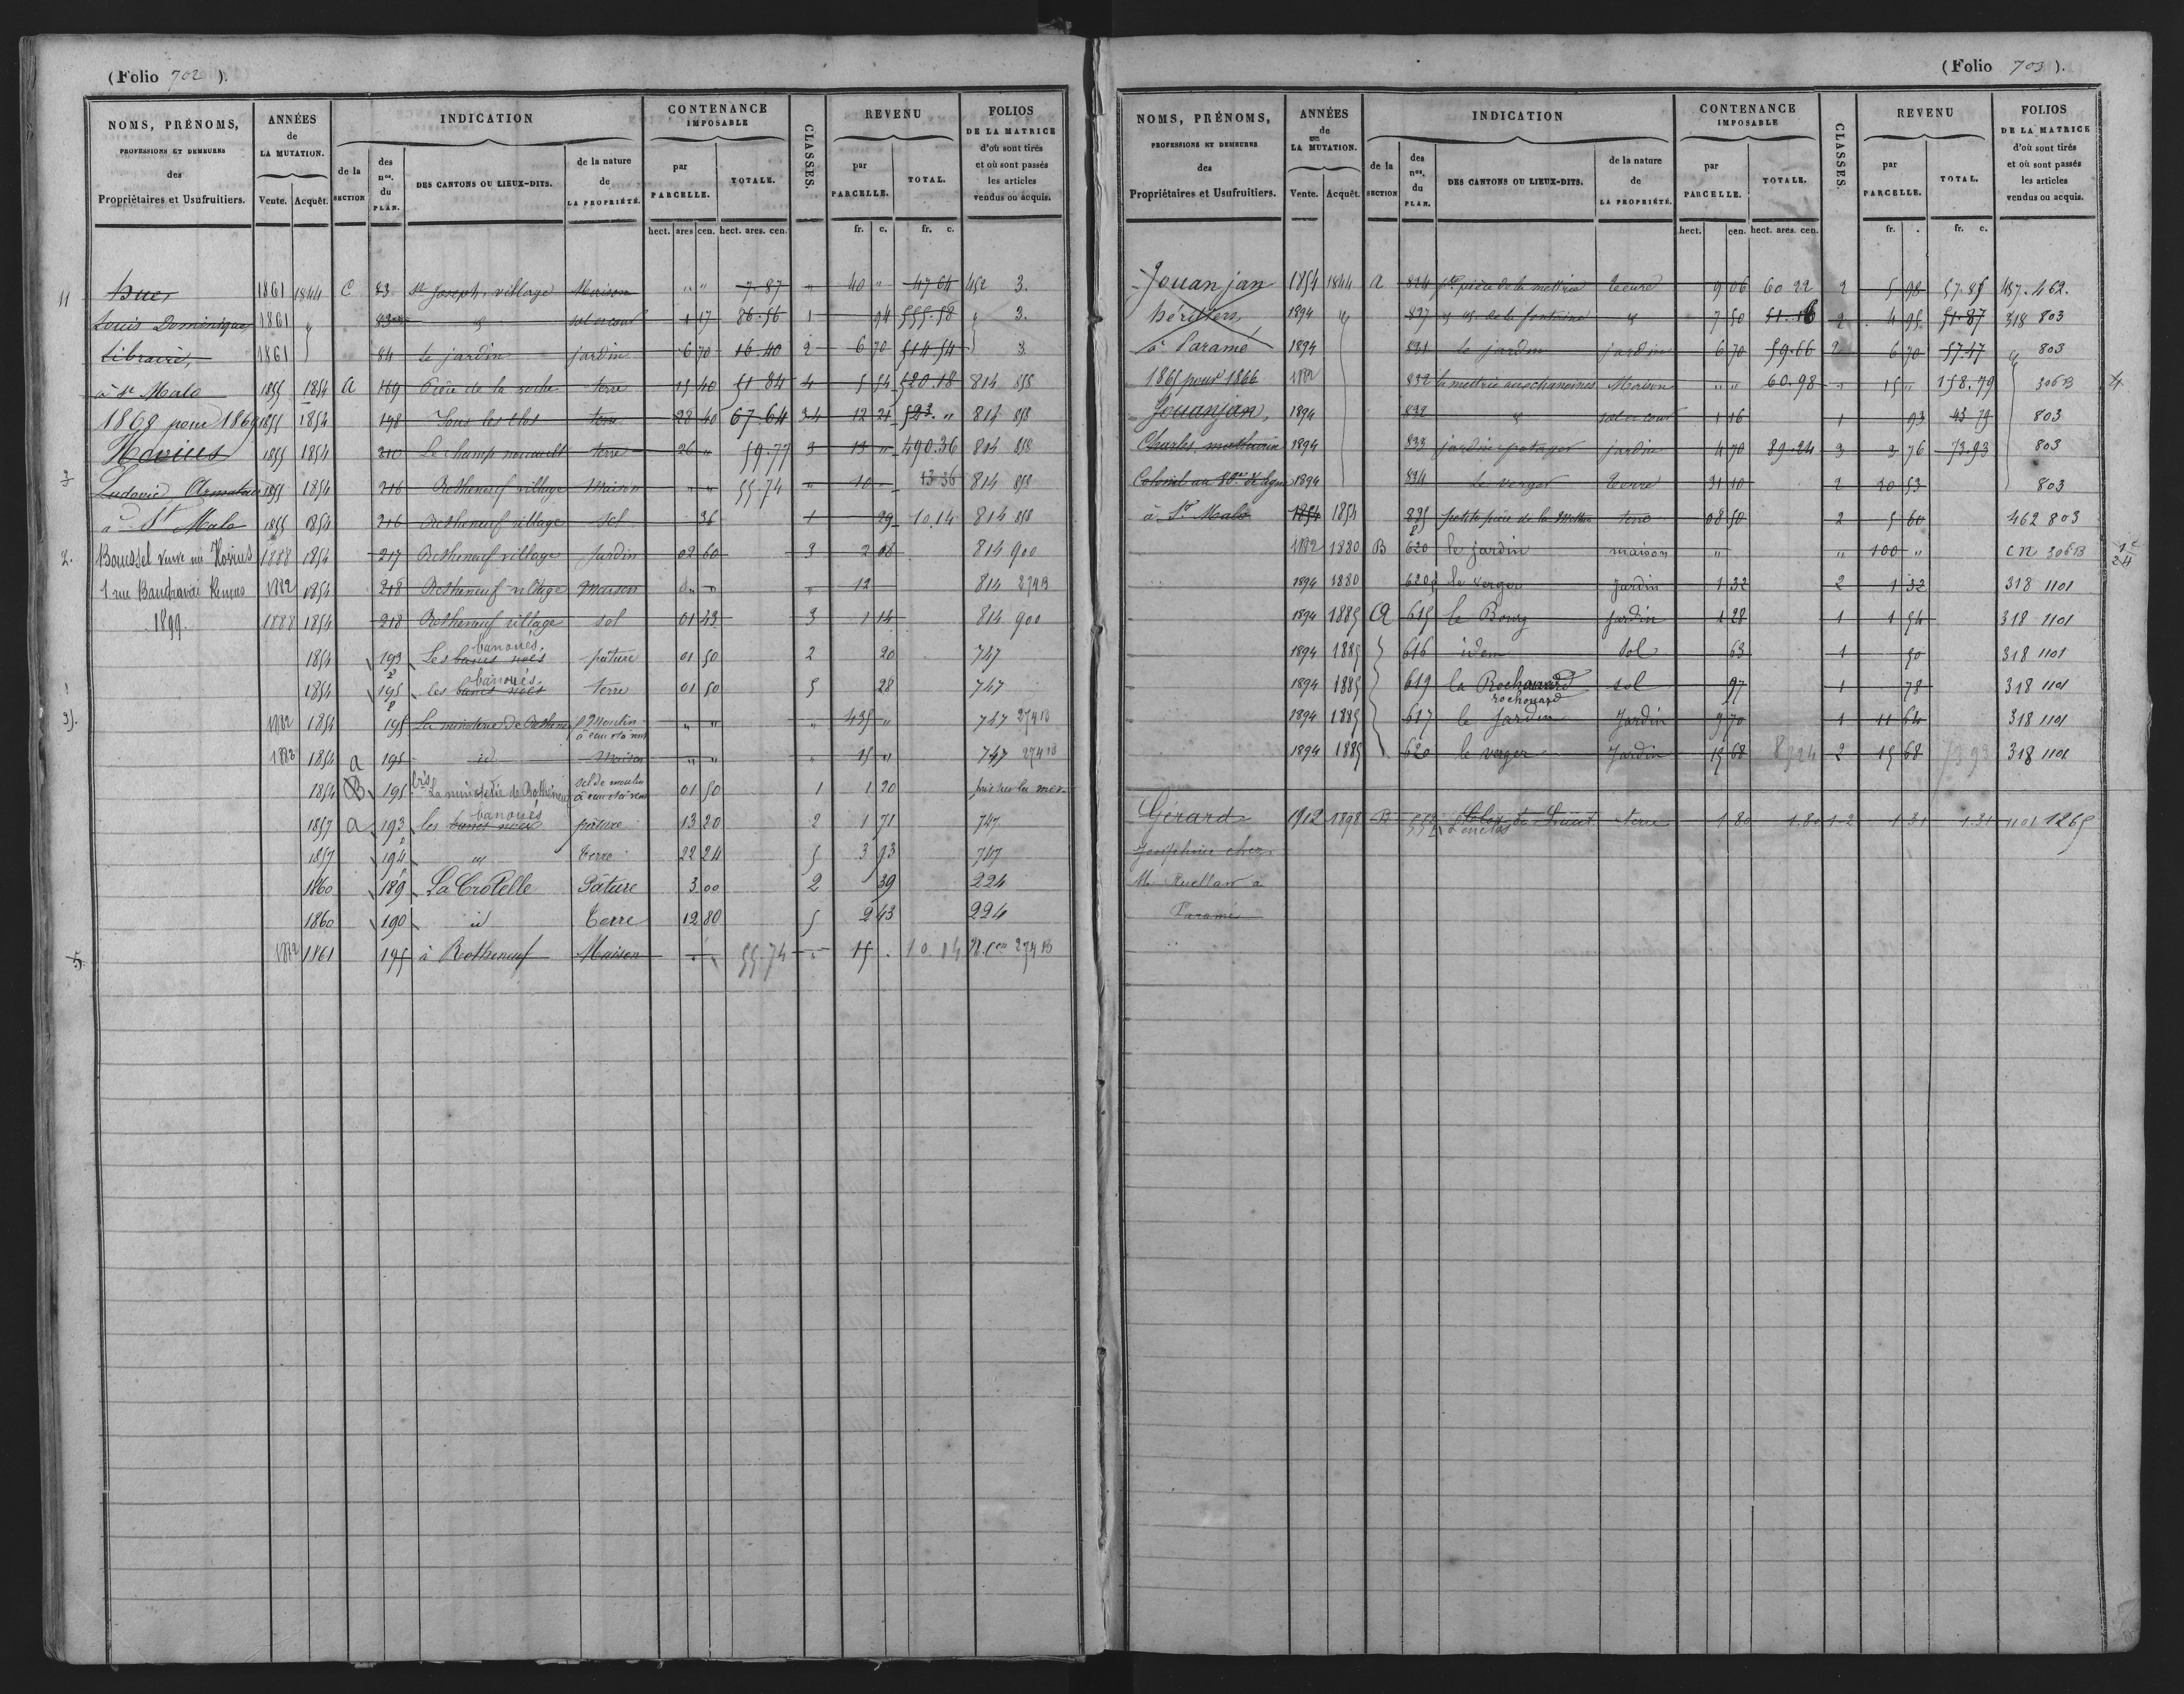 (Folio 702).
NOMS, PRÉNOMS, PROFESSIONS ET DEMEURES des Propriétaires et Usufruitiers.
ANNÉES de LA MUTATION. Vente. Acquêt.
INDICATION de la SECTION des nos. du PLAN. DES CANTONS OU LIEUX-DITS. de la nature de LA PROPRIÉTÉ.
CONTENANCE IMPOSABLE par PARCELLE. TOTALE.
CLASSES.
REVENU par PARCELLE. TOTAL.
FOLIOS DE LA MATRICE d'où sont tirés et où sont passés les articles vendus ou acquis.
hect. ares cen. hect. ares. cen. fr. c. fr. c.
11 Hue, 1861 1844 C 83 St Joseph, village Maison " " 7.87 " 40 " 47 64 452 3.
Louis Dominique 1861 " 83 " sol et cour 1 17 86.56 1 94 555.58 " 3.
Libraire, 1861 84 le jardin jardin 6 70 16.40 2 6 70 514 54 3
à St Malo 1855 1854 A 169 Pièce de la roche terre 15 40 51 84 4 5 54 520.18 814 858
1868 pour 1869 1855 1854 198 Sous les clos terre 28 40 67.64 3 4 12 21 523 " 814 858
Hovius 1855 1854 210 Le champ terre 26 " 59.77 3 13 " 490.36 814 858
Ludovic 1855 1854 216 Rotheneuf village Maison " " 55.74 " 10 " 13 36 814 858
à St Malo 1855 1854 216 Rotheneuf village sol 36 1 29 10.14 814 858
2. Boussel veuve née Hovius 1888 1854 217 Rotheneuf village Jardin 02 60 3 2 08 814 900
1 rue Rennes 1882 1854 218 Rotheneuf village Maison " " " 12 814 274B
1899. 1888 1854 218 Rotheneuf village sol 01 43 3 1 14 814 900
1854 193 Les bancs noës banoués. pâture 01 50 2 20 747
1854 195 les bancs noës banoués. terre 01 50 5 28 747
1882 1854 195 La minoterie de Rotheneuf Moulin à eau et à vent " " " 435 " 747 274B
1882 1854 a 195 id Maison " " " 15 " 747 274B
1854 B 195 bis La minoterie de Rotheneuf sol de moulin à eau et à vent 01 50 1 1 20 pris sur la mer
1857 a 193 les bancs noës banoués pâture 13 20 2 1 71 747
1857 194 " terre 22 24 5 3 93 747
1860 189 La Crotelle Pâture 3 00 2 39 224
1860 190 id Terre 12 80 5 2 43 224
5. 1882 1861 195 à Rotheneuf Maison " " 55.74 " 15 . 10.14 274 B
(Folio 703).
NOMS, PRÉNOMS, PROFESSIONS ET DEMEURES des Propriétaires et Usufruitiers.
ANNÉES de LA MUTATION. Vente. Acquêt.
INDICATION de la SECTION des nos. du PLAN. DES CANTONS OU LIEUX-DITS. de la nature de LA PROPRIÉTÉ.
CONTENANCE IMPOSABLE par PARCELLE. TOTALE.
CLASSES.
REVENU par PARCELLE. TOTAL.
FOLIOS DE LA MATRICE d'où sont tirés et où sont passés les articles vendus ou acquis.
hect. cen. hect. ares. cen. fr. . fr. c.
Jouanjan 1854 1844 A 824 pte pièce de la mettrie terre 9 06 60 22 2 5 98 57.85 457.462.
héritiers, 1894 " 827 " de la fontaine " 7 50 51.16 2 4 95 51.87 318 803
à Paramé 1894 831 le jardin jardin 6 70 59.66 2 6 70 57.17 " 803
1865 pour 1866 1882 832 la mettrie aux chanoines Maison " " 60.98 " 15 " 158.79 306B 4
Jouanjan, 1894 832 " sol et cour 1 16 1 93 43 79 803
Charles, mathurin 1894 833 jardin potager jardin 4 70 89.24 3 3 76 73.93 803
Colonel au de ligne 1894 834 Le verger Terre 31 10 2 20 53 803
à St Malo 1854 1854 825 petite pièce de la Mettrie terre 08 50 2 5 60 462 803
1882 1880 B 620 le jardin maison " " 100 " CN 306B
1894 1880 620 le verger Jardin 1 32 2 1 32 318 1101
1894 1885 A 615 le Bourg Jardin 1 28 1 1 54 318 1101
1894 1885 616 idem sol 63 1 50 318 1101
1894 1885 619 la Rochouard rochouard sol 97 1 78 318 1101
1894 1885 617 le Jardin Jardin 9 70 1 11 64 318 1101
1894 1885 620 le verger Jardin 15 68 8924 2 15 68 73 93 318 1101
Gérard 1912 1898 B 552 terre 1 80 1.80 1-2 1 31 1.31 1101 1265
Joséphine chez
M. Ruellan à
Paramé